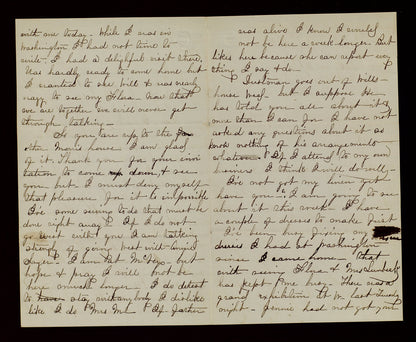 with me today. While I was in
Washington I had not time to
write. I had a delightful visit there.
Was hardly ready to come home but
I wanted to see Will & was very
to see my Flora. Now that
we are together we will never get
through talking.
So you are up to the
other Morris house. I am glad
of it. Thank you for your invi
tation to come up down & see
you but I must deny myself
that pleasure for it is impossible
I've some sewing to do that must be
done right away. If I do not
go west with you. I am talking
strongly of going west with
I am but
hope & pray I will not be
here much longer. I do detest
to have stay with anybody I dislike
like I do Mrs M. If Jester
was alive I know I would
not be here a week longer. But
likes here because she can report every
thing I say & do.
Dustman goes out of Wills
house Wed. but I suppose he
has told you all about it
more than I can for I have not
asked any questions about it so
know nothing of his arrangements
whatever. If I attend to my own
business I think I will do well.
I've not got my linen just
have you. I am going to see
about it this week. I have
a couple of dresses to make first
I'm busy fixing my
dresses I had at Washington
since I came home. That
with seeing Flora &
has kept me busy. There was a
grand expedition last Tuesday
night. Jennie had not got just